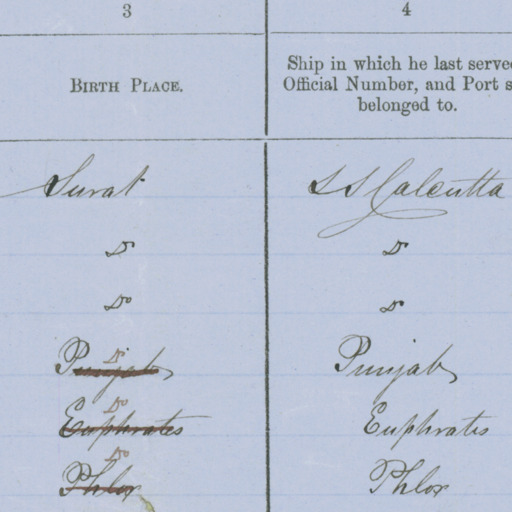 3 4
BIRTH PLACE. Ship in which he last serve
Official Number, and Port s
belonged to.
Surat SS Calcutta
Do Do
Do Do
Do
Punjab Punjab
Do
Euphrates Euphrates
Do
Phlox Phlox